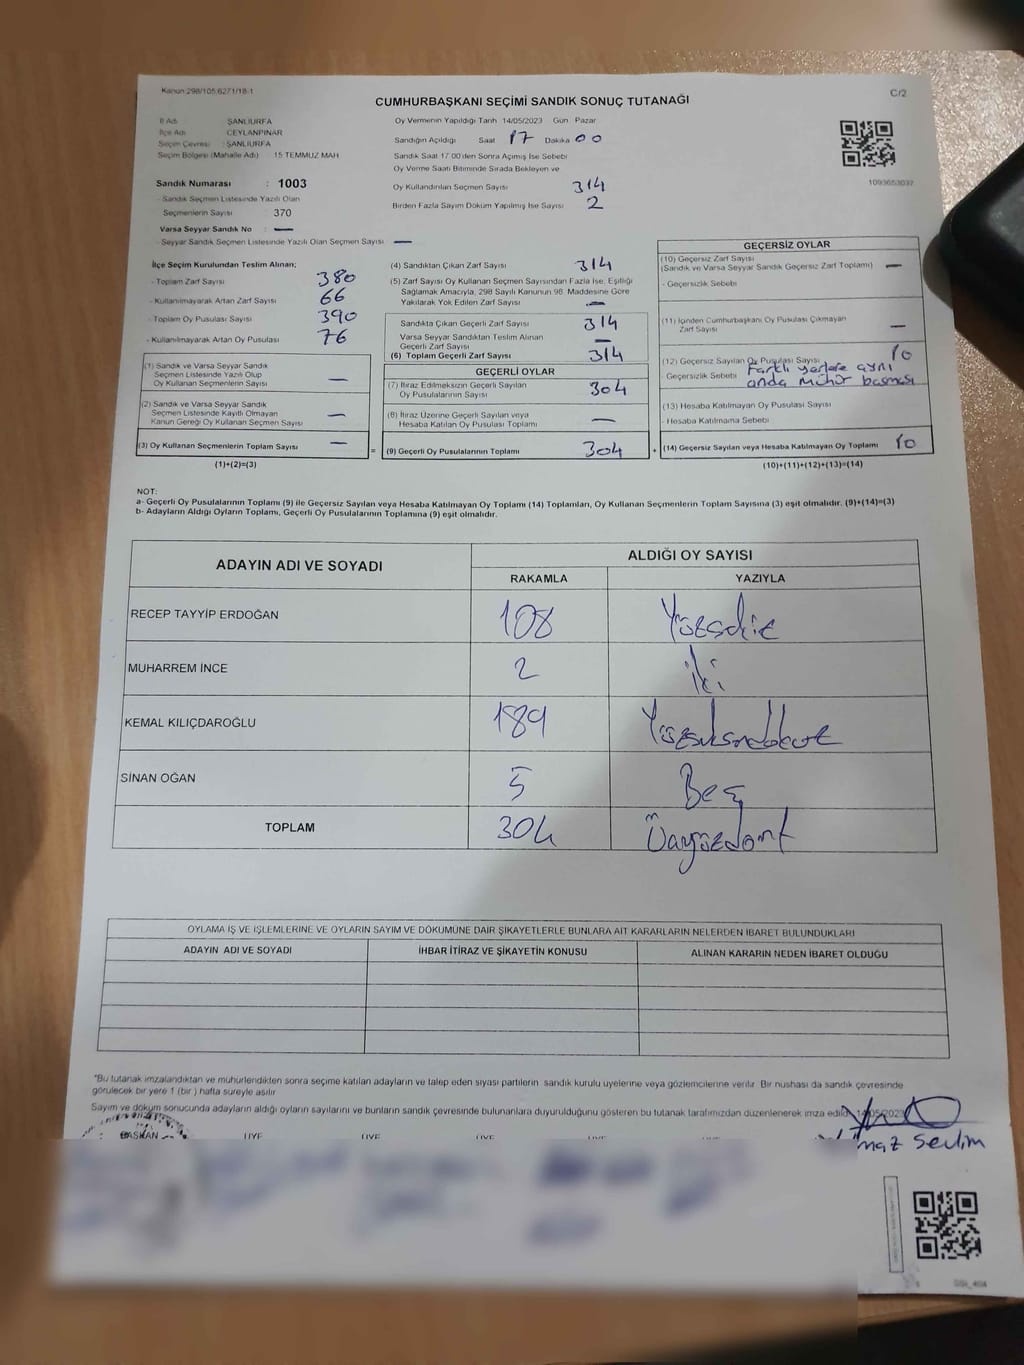 Kanun 298/105,6271/18-1
C/2
CUMHURBAŞKANI SEÇİMİ SANDIK SONUÇ TUTANAĞI
İl Adı : ŞANLIURFA
İlçe Adı : CEYLANPINAR
Seçim Çevresi : ŞANLIURFA
Seçim Bölgesi (Mahalle Adı) 15 TEMMUZ MAH
Sandık Numarası : 1003
- Sandık Seçmen Listesinde Yazılı Olan
Seçmenlerin Sayısı : 370
Varsa Seyyar Sandık No : —
- Seyyar Sandık Seçmen Listesinde Yazılı Olan Seçmen Sayısı : —
Oy Vermenin Yapıldığı Tarih 14/05/2023 Gün Pazar
Sandığın Açıldığı Saat 17 Dakika 00
Sandık Saat 17:00'den Sonra Açılmış İse Sebebi
Oy Verme Saati Bitiminde Sırada Bekleyen ve
Oy Kullandırılan Seçmen Sayısı 314
Birden Fazla Sayım Döküm Yapılmış İse Sayısı 2
1093653037
İlçe Seçim Kurulundan Teslim Alınan;
- Toplam Zarf Sayısı 380
- Kullanılmayarak Artan Zarf Sayısı 66
- Toplam Oy Pusulası Sayısı 390
- Kullanılmayarak Artan Oy Pusulası 76
(1) Sandık ve Varsa Seyyar Sandık
Seçmen Listesinde Yazılı Olup
Oy Kullanan Seçmenlerin Sayısı —
(2) Sandık ve Varsa Seyyar Sandık
Seçmen Listesinde Kayıtlı Olmayan
Kanun Gereği Oy Kullanan Seçmen Sayısı —
(3) Oy Kullanan Seçmenlerin Toplam Sayısı —
(1)+(2)=(3)
(4) Sandıktan Çıkan Zarf Sayısı 314
(5) Zarf Sayısı Oy Kullanan Seçmen Sayısından Fazla İse, Eşitliği
Sağlamak Amacıyla, 298 Sayılı Kanunun 98. Maddesine Göre
Yakılarak Yok Edilen Zarf Sayısı —
Sandıkta Çıkan Geçerli Zarf Sayısı 314
Varsa Seyyar Sandıktan Teslim Alınan
Geçerli Zarf Sayısı —
(6) Toplam Geçerli Zarf Sayısı 314
GEÇERLİ OYLAR
(7) İtiraz Edilmeksizin Geçerli Sayılan
Oy Pusulalarının Sayısı 304
(8) İtiraz Üzerine Geçerli Sayılan veya
Hesaba Katılan Oy Pusulası Toplamı —
= (9) Geçerli Oy Pusulalarının Toplamı 304 +
GEÇERSİZ OYLAR
(10) Geçersiz Zarf Sayısı
(Sandık ve Varsa Seyyar Sandık Geçersiz Zarf Toplamı) —
- Geçersizlik Sebebi
(11) İçinden Cumhurbaşkanı Oy Pusulası Çıkmayan
Zarf Sayısı —
(12) Geçersiz Sayılan Oy Pusulası Sayısı 10
Geçersizlik Sebebi Farklı yerlere aynı
anda mühür basması
(13) Hesaba Katılmayan Oy Pusulası Sayısı
- Hesaba Katılmama Sebebi
(14) Geçersiz Sayılan veya Hesaba Katılmayan Oy Toplamı 10
(10)+(11)+(12)+(13)=(14)
NOT:
a- Geçerli Oy Pusulalarının Toplamı (9) ile Geçersiz Sayılan veya Hesaba Katılmayan Oy Toplamı (14) Toplamları, Oy Kullanan Seçmenlerin Toplam Sayısına (3) eşit olmalıdır. (9)+(14)=(3)
b- Adayların Aldığı Oyların Toplamı, Geçerli Oy Pusulalarının Toplamına (9) eşit olmalıdır.
ADAYIN ADI VE SOYADI
ALDIĞI OY SAYISI
RAKAMLA YAZIYLA
RECEP TAYYİP ERDOĞAN 108 Yüzsekiz
MUHARREM İNCE 2 iki
KEMAL KILIÇDAROĞLU 189 Yüzseksendokuz
SİNAN OĞAN 5 Beş
TOPLAM 304 Üçyüzdört
OYLAMA İŞ VE İŞLEMLERİNE VE OYLARIN SAYIM VE DÖKÜMÜNE DAİR ŞİKAYETLERLE BUNLARA AİT KARARLARIN NELERDEN İBARET BULUNDUKLARI
ADAYIN ADI VE SOYADI İHBAR İTİRAZ VE ŞİKAYETİN KONUSU ALINAN KARARIN NEDEN İBARET OLDUĞU
*Bu tutanak imzalandıktan ve mühürlendikten sonra seçime katılan adayların ve talep eden siyasi partilerin sandık kurulu üyelerine veya gözlemcilerine verilir. Bir nüshası da sandık çevresinde
görülecek bir yere 1 (bir) hafta süreyle asılır
Sayım ve döküm sonucunda adayların aldığı oyların sayılarını ve bunların sandık çevresinde bulunanlara duyurulduğunu gösteren bu tutanak tarafımızdan düzenlenerek imza edildi. 14/05/2023
BAŞKAN ÜYE ÜYE ÜYE ÜYE ÜYE
Sevlim